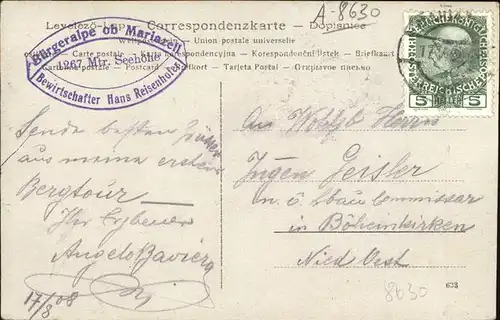 A-8630
Levelező-Lap. Correspondenzkarte — Dopisnice
Weltpostverein – Union postale universelle
Carte postale — Karta korespondencyjna — Korespondenční lístek — Briefkaart
Postcard — Tarjeta Postal — Открытое письмо
Bürgeralpe ob Mariazell
1267 Mtr. Seehöhe
Bewirtschafter Hans Reisenhofer
5 HELLER 5
Sende besten
aus meine ersten
Bergtour
Ihr Ergebener
Angelo Baviera
17/8 08
An Wohlgb Herrn
Geisler
n. ö. Commissar
in Böheimkirchen
Nied Oest.
8630
633